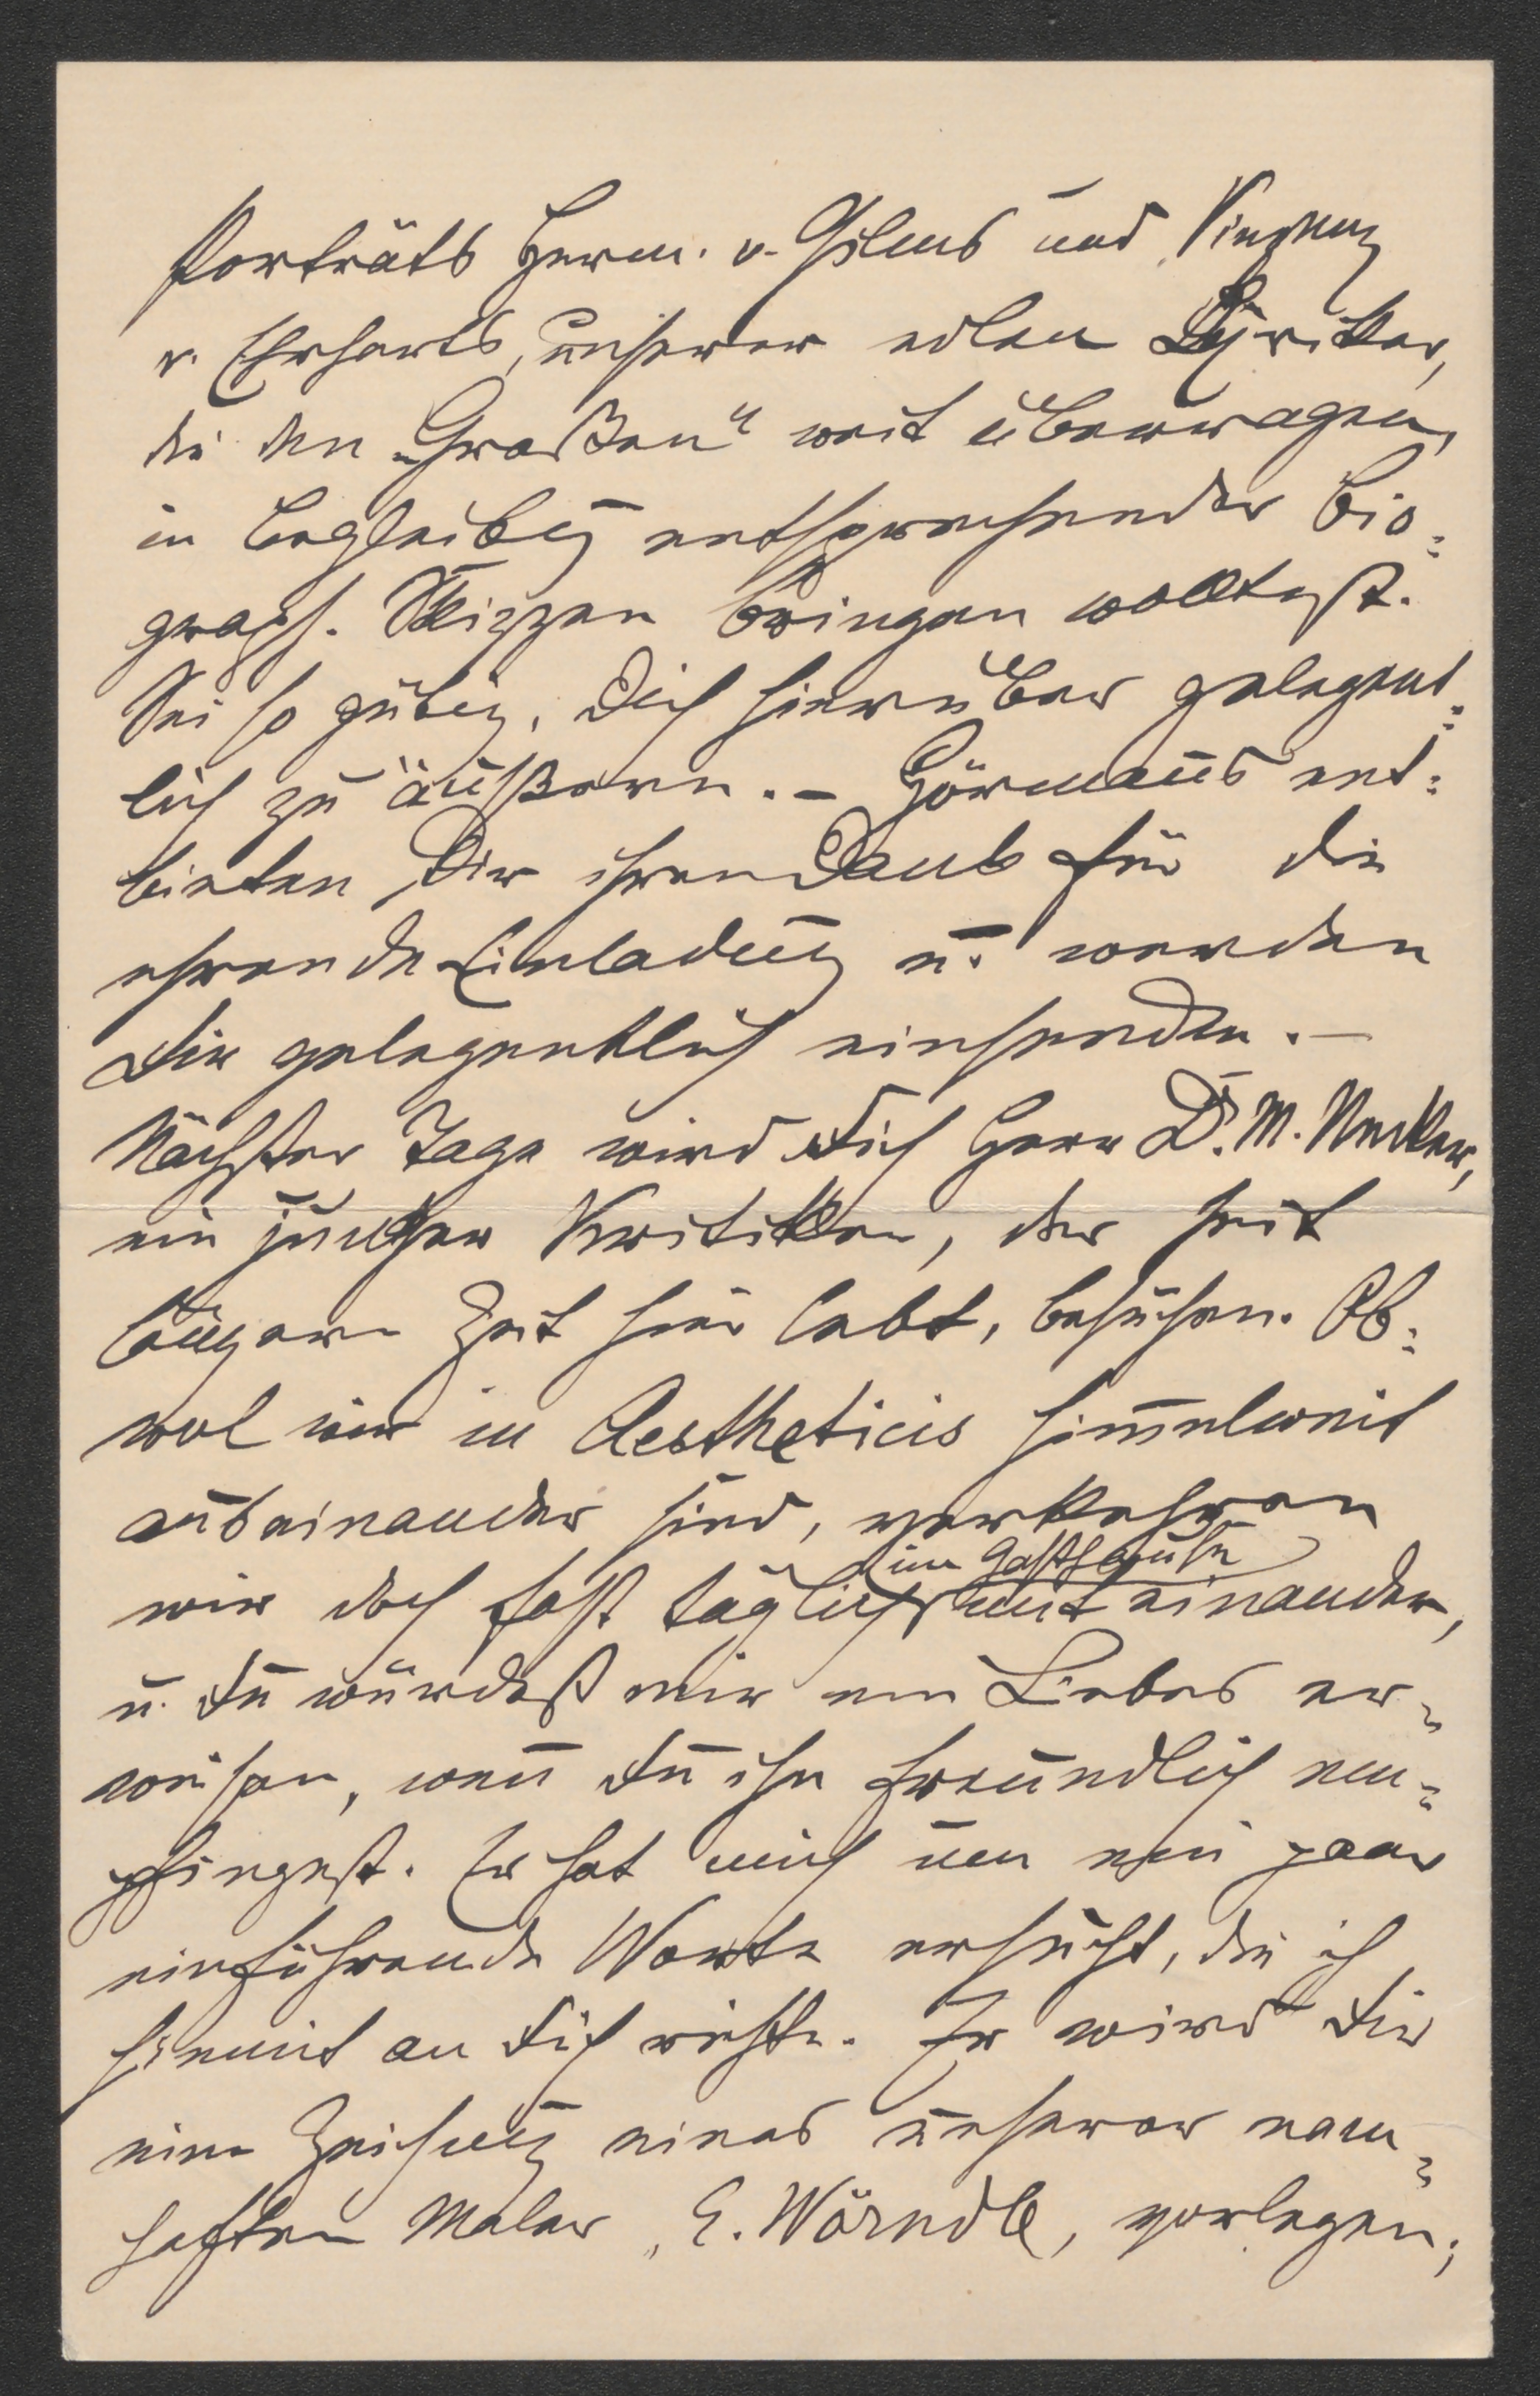 Porträts Herm. v. Gilms und Vinzenz
v. Ehrharts, unserer edlen Lyriker,
die den „Großen“ weit überragen,
in Begleitung entsprechender bio-
graph. Skizzen bringen wolltest.
Sei so gütig, Dich hierüber gelegent-
lich zu äußern. – Hörmanns ent-
bieten Dir ihren Dank für die
ehrende Einladung u. werden
Dir gelegentlich einsenden. –
Nächster Tage wird Dich Herr Dr. M. Necker,
ein junger Kritiker, der seit
länger Zeit hier lebt, besuchen. Ob-
wol wir in Aestheticis himmelweit
auseinander sind, verkehren
wir doch fast täglich im Gasthause mit einander,
u. Du würdest mir ein Liebes er-
weisen, wenn Du ihn freundlich em-
pfingest. Er hat mich um ein paar
einführende Worte ersucht, die ich
hiemit an Dich richte. Er wird Dir
eine Zeichnung eines unserer nam-
haften Maler, E. Wörndle, vorlegen;